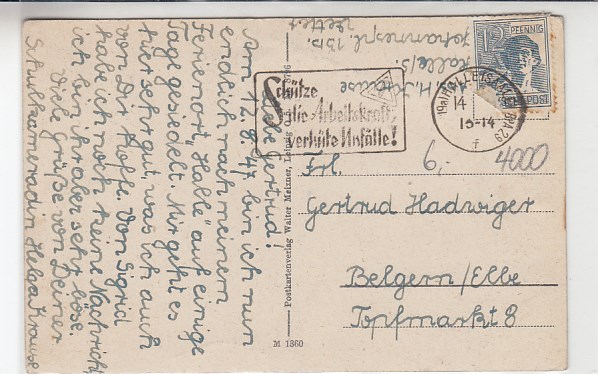 Liebe Gertrud!
Am 12.8.47 bin ich nun
endlich nach meinem
Ferienort „Halle“ auf einige
Tage gesiedelt. Mir geht es
hier sehr gut, was ich auch
von Dir hoffe. Von Sigrid
habe ich noch keine Nachricht
ich bin ihr aber sehr böse.
Viele Grüße von Deiner
Schulkameradin Helga Krause
H. Krause
Halle/S.
Johannespl. 13b.
Schütze
die Arbeitskraft,
verhüte Unfälle!
12 PFENNIG
DEUTSCHE POST
14
15-14
f
6,-
4000
Frl.
Gertrud Hadwiger
Belgern/Elbe
Topfmarkt 8
Postkartenverlag Walter Meizner, Leipzig
M 1360